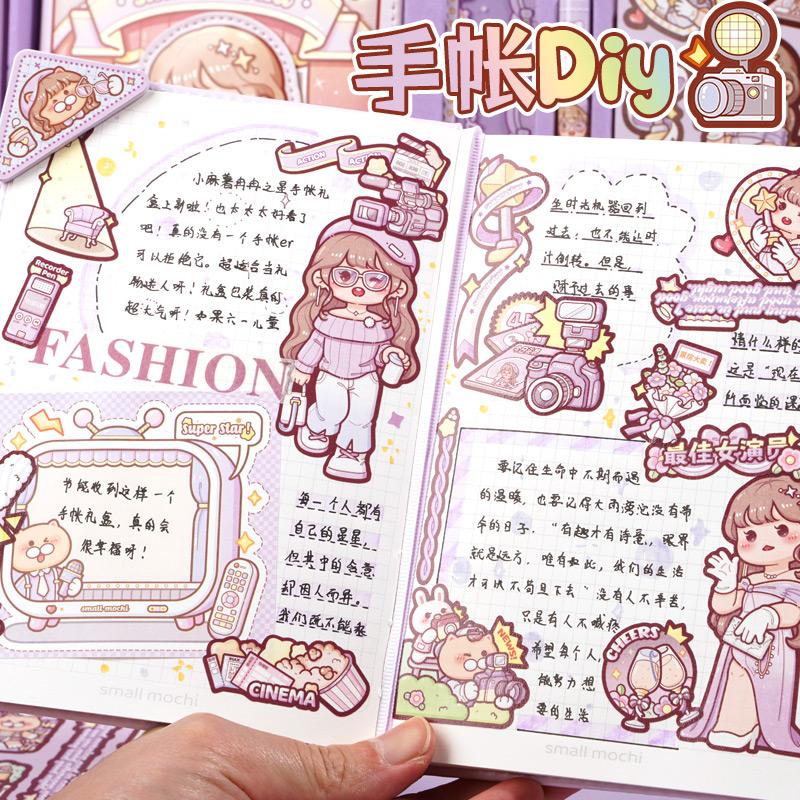 手帐Diy
ACTION
小麻薯冉冉之星手帐礼
盒上新啦！也太太太好看了
吧！真的没有一个手帐er
可以拒绝它。超适合当礼
物送人呀！礼盒包装真的
超大气呀！如果六一儿童
Recorder
Pen
FASHION
Super Star!
节能收到这样一个
手帐礼盒，真的会
很幸福呀！
small mochi
每一个人都有
自己的星星，
但其中的含意
却因人而异。
我们既不能乘
CINEMA
small mochi
坐时光机器回到
过去，也不能让时
计倒转。但是，
对于过去的事
情什么样的
这是“现在
所面临的课
最佳女演员
要记住生命中不期而遇
的温暖，也要记得大雨滂沱没有带
伞的日子。“有趣才有诗意，眼界
就是远方，唯有如此，我们的生活
才可以不苟且下去”没有人不辛苦，
只是有人不喊疼
希望每个人，
做努力想
要的生活
NEWS!
CHEERS
small mochi